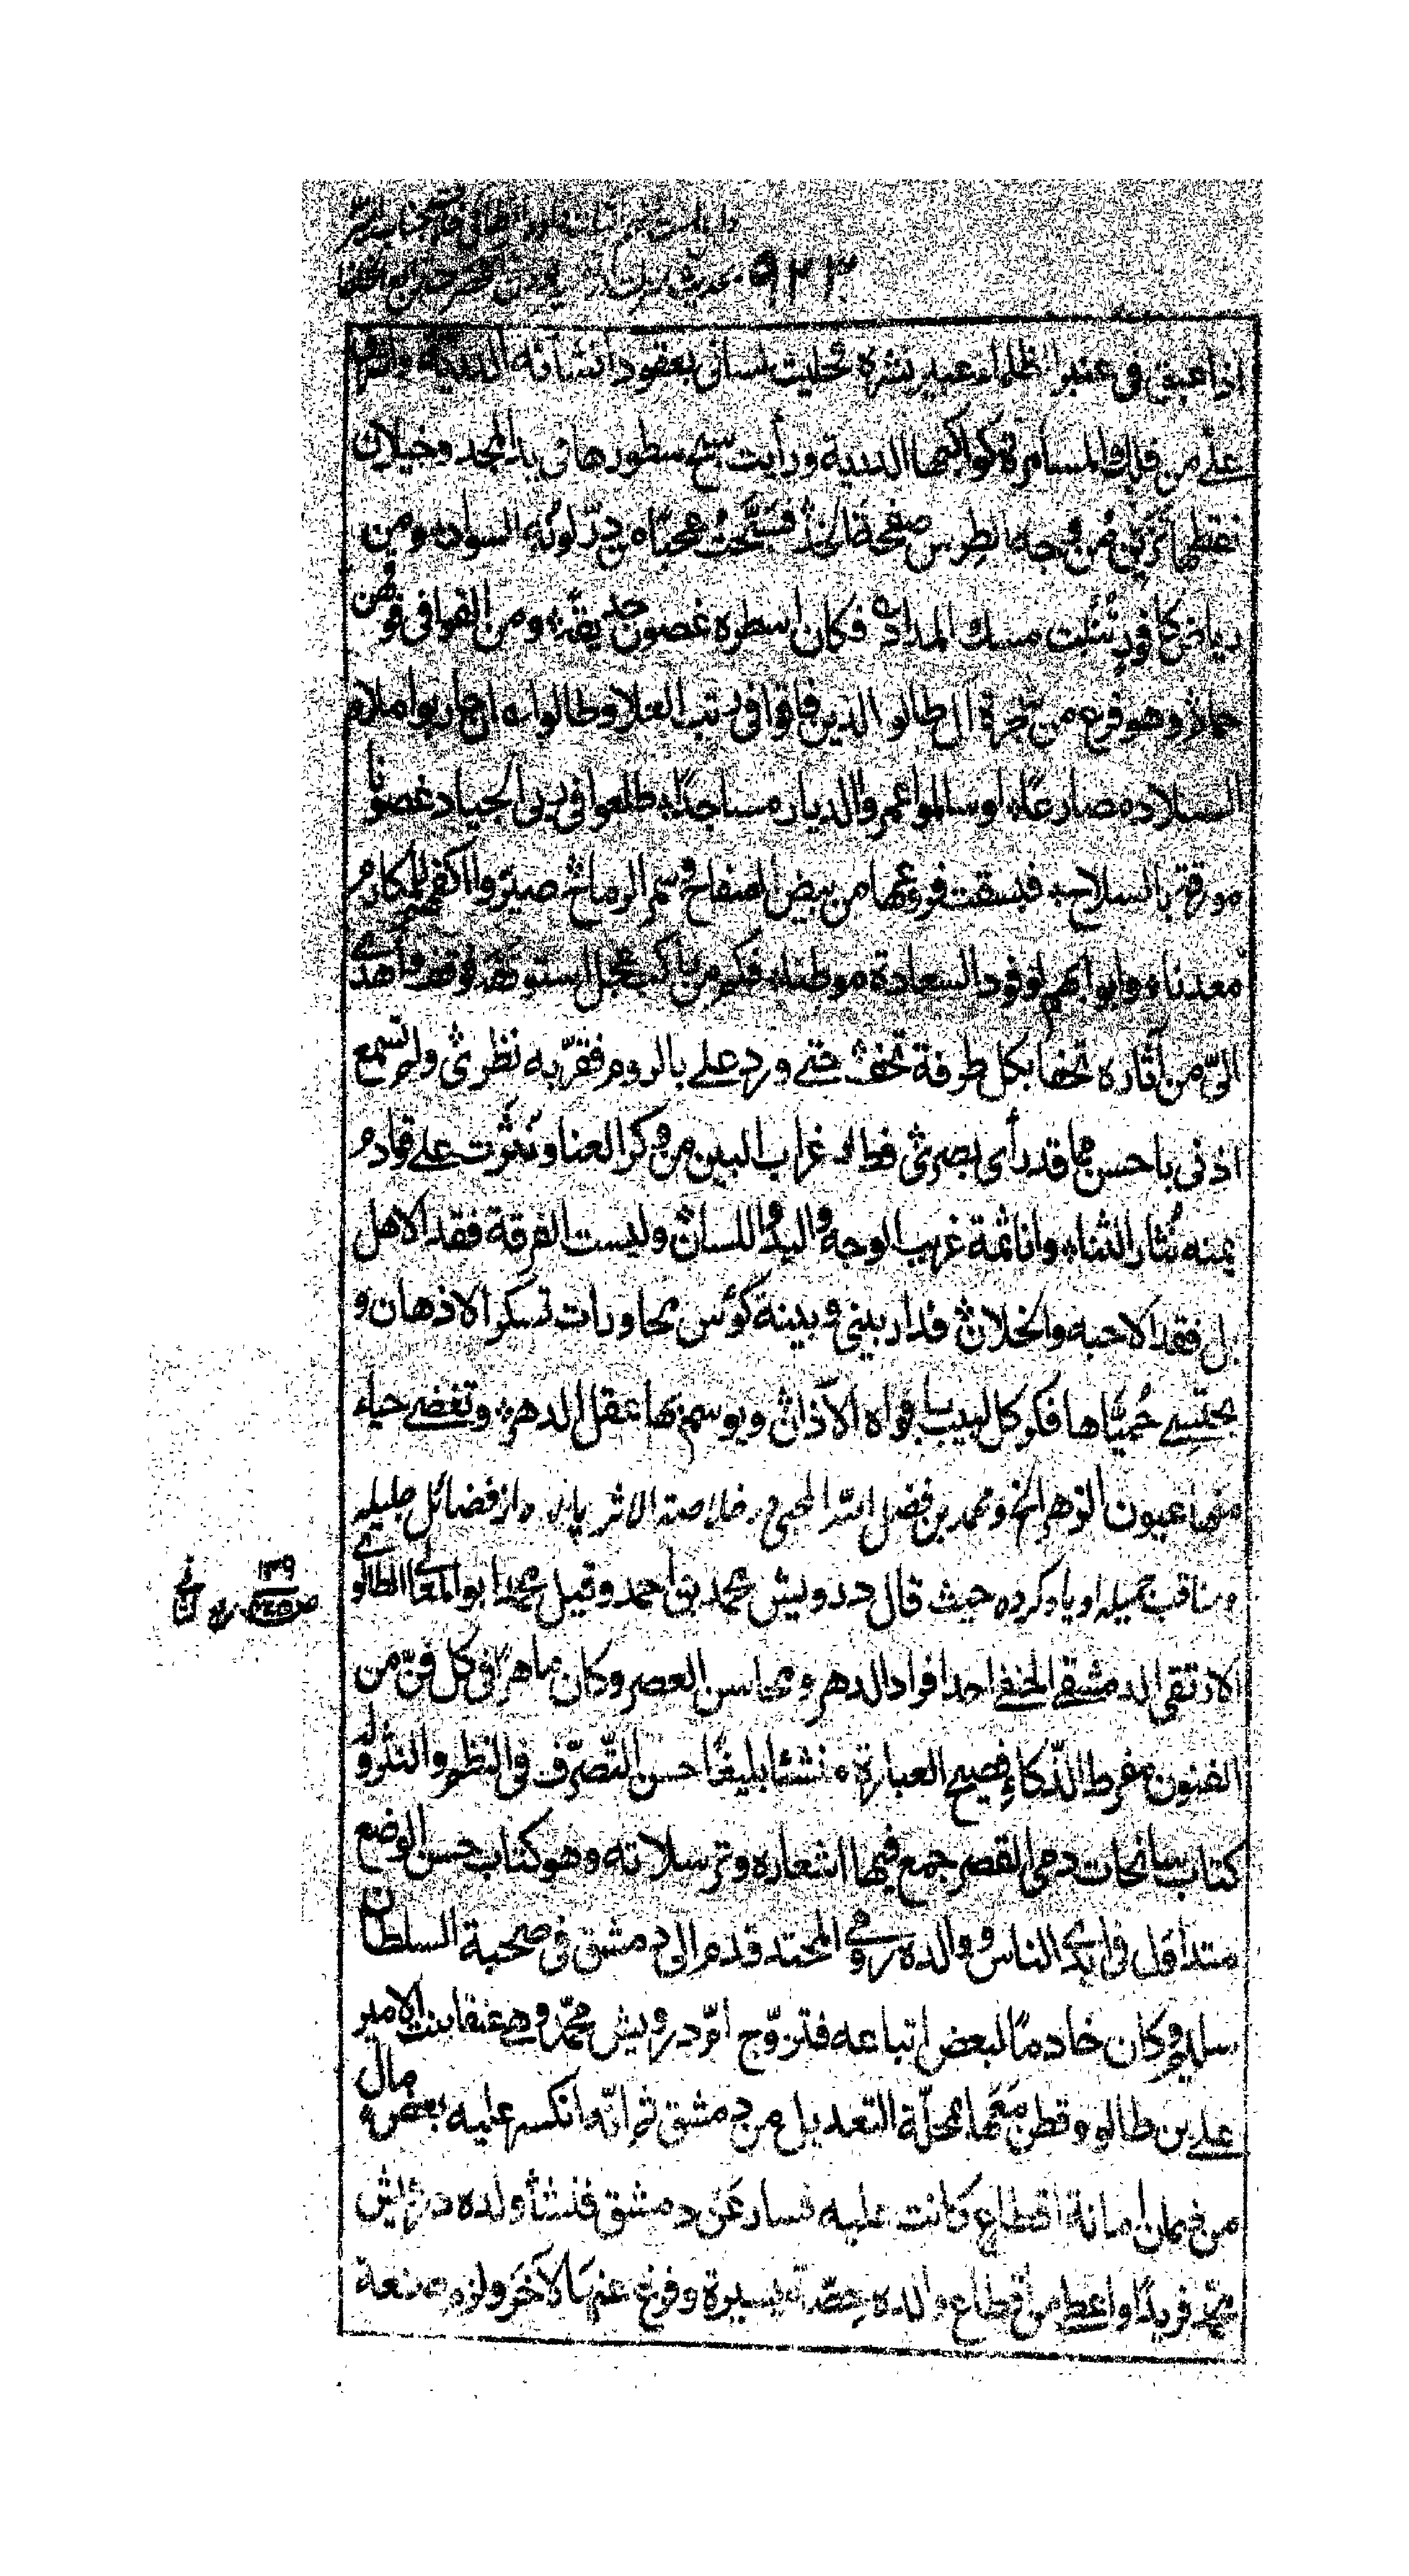 ۹۲۳
اذا عبق فى عنبر الظلماء عبير نشره تحليت لسانى بعقود انشائه
على من فلك المسامرة كواكبها الدرية ورأيت سبح سطورها فى يد المجد وخيلان
نقطها تزين من وجه الطرس صفحة الخد فسبحت عجبا من در لونه السواد ومن
رياض كافور تنبت مسك المداد فكان اسطره غصون حديقة ومن القوافى فوقهن
حمائم وهو فرع من شجرة ال طالو الذين فاقوا فى رتب العلا وطالوا ان حاربوا ملاؤا
السلاد مصارعا او سالموا عمروا الديار مساجدا طلعوا فى ربى الجياد غصونا
مورقة بالسلاح فبسقت فروعها من بيض الصفاح وسمر الرماح صيروا اكفهم للمكارم
معدنا وابوابهم لوفود السعادة موطنا فكم من راكب عجل استوقفته فوقف واهدى
الىّ من آثاره تحفا بكل طرفة تحف حتى ورد على بالروم فقرّ به نظرى ولم تسمع
اذنى باحسن مما قد رأى بصرى فطار غراب البين من وكر العنا ونثرت على قادم
يمنه نثار الثناء وانا ثمة غريب الوجه واليد واللسان وليست الفرقة فقد الاهل
بل فقد الاحبه والخلان فدار بينى وبينه كؤس محاورات تسكر الاذهان و
يحتسى حُميّاها فكر كل لبيب بافواه الآذان ويوسم بها عقل الدهر وتغضى حياء
منها عيون الزهر الخ ومحمد بن فضل الله المحبى در خلاصة الاثر پاره از فضائل جليله
ومناقب جميله او ياد كرده حيث قال درويش محمد بن احمد وقيل محمد ابو المعالى الطالوى
الارتقى الدمشقى الحنفى احد افراد الدهر ومحاسن العصر وكان ماهرا فى كل فنّ من
الفنون مفرط الذّكاء فصيح العبارة منشئا بليغا حسن التّصرّف فى النظم والنثر وله
كتاب سانحات دمى القصر جمع فيها اشعاره وترسلاته وهو كتاب حسن الوضع
متداول فى ايدى الناس ووالده رومى المحتد قدم الى دمشق فى صحبة السلطان
سليم وكان خادما لبعض اتباعه فتزوّج امّ درويش محمّد وهى عنقا بنت الامير
على بن طالو وقطن معها بمحلّة التعديل من دمشق ثم انّه انكسر عليه بعض مال
من ضمان امانة اقطاع كانت عليه فسار عن دمشق فنشأ ولده درويش
محمّد فريدا واعطى من اقطاع والده حصّة يسيرة وفرغ عنها لآخر ولزم صنعة